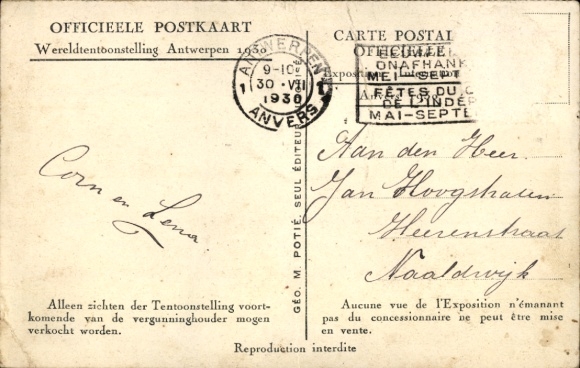 OFFICIEELE POSTKAART
Wereldtentoonstelling Antwerpen 1930
CARTE POSTAL
OFFICIELLE
Exposition Internation
ANTWERPEN
1 9-10 1
30 · VII
1930
ANVERS
ONAFHANK
MEI-SEP
FÊTES DU C
DE L'INDÉP
MAI-SEPTE
Corn en Lena
GÉO. M. POTIÉ, SEUL ÉDITEUR
Aan den Heer.
Jan Hoogstraten
Heerenstraat
Naaldwijk
Alleen zichten der Tentoonstelling voort-
komende van de vergunninghouder mogen
verkocht worden.
Aucune vue de l'Exposition n'émanant
pas du concessionnaire ne peut être mise
en vente.
Reproduction interdite